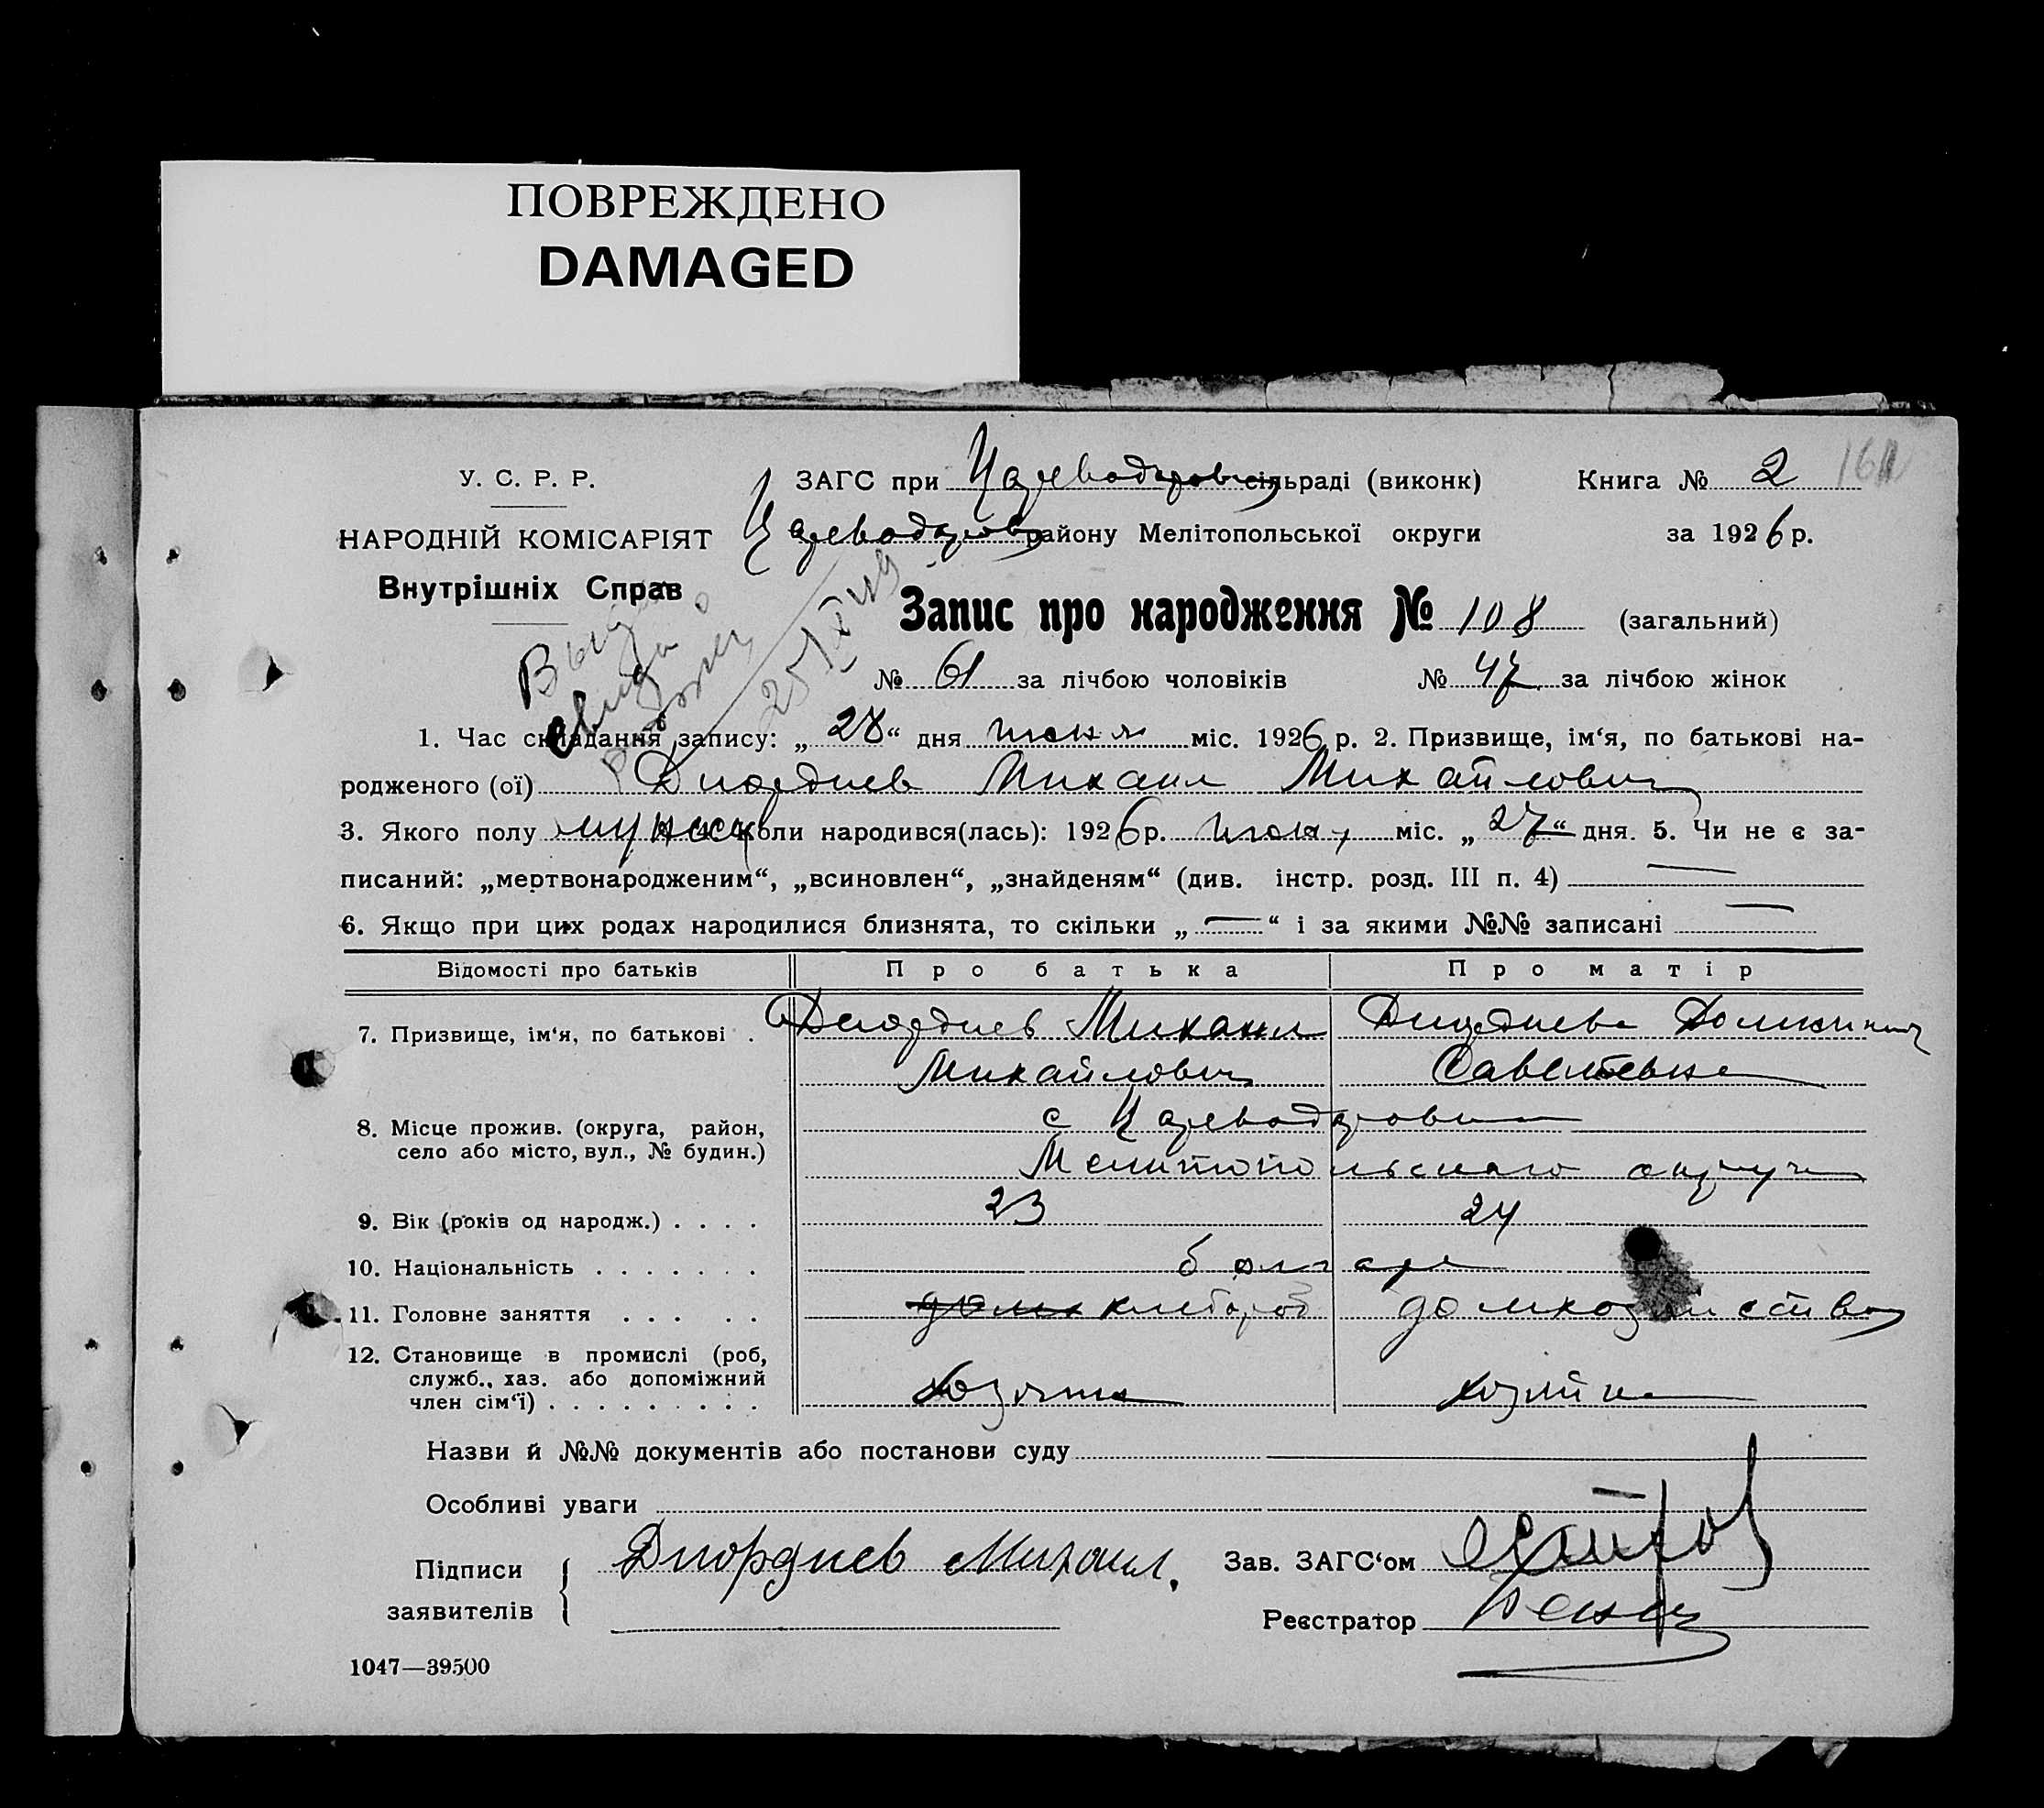 ПОВРЕЖДЕНО
DAMAGED
У. С. Р. Р.
НАРОДНІЙ КОМІСАРІЯТ
Внутрішніх Справ
ЗАГС при Цареводаровск сільраді (виконк)
Цареводаров району Мелітопольської округи
Книга № 2
за 1926 р.
Запис про народження № 108 (загальний)
№ 61 за лічбою чоловіків № 47 за лічбою жінок
1. Час складання запису: „28“ дня июня міс. 1926 р. 2. Призвище, ім‘я, по батькові на-
родженого (ої) Диордиев Михаил Михайлович
3. Якого полу мужск 4. Коли народився(лась): 1926 р. июня міс. „27“ дня. 5. Чи не є за-
писаний: „мертвонародженим“, „всиновлен“, „знайденям“ (див. інстр. розд. III п. 4) —
6. Якщо при цих родах народилися близнята, то скільки „—“ і за якими №№ записані —
Відомості про батьків Про батька Про матір
7. Призвище, ім‘я, по батькові . Диордиев Михаил Диордиева
Михайлович Савельевна
8. Місце прожив. (округа, район, с Цареводаровка
село або місто, вул., № будин.) Мелитопольского округа
9. Вік (років од народж.) . . . . 23 24
10. Національність . . . . . . . болгаре
11. Головне заняття . . . . . хлебороб домхозяйство
12. Становище в промислі (роб,
служб., хаз. або допоміжний
член сім‘ї) . . . . . . . . . хозяин хозяйка
Назви й №№ документів або постанови суду
Особливі уваги
Підписи
заявителів
Диордиев Михаил.
Зав. ЗАГС‘ом
Реєстратор
1047—39500